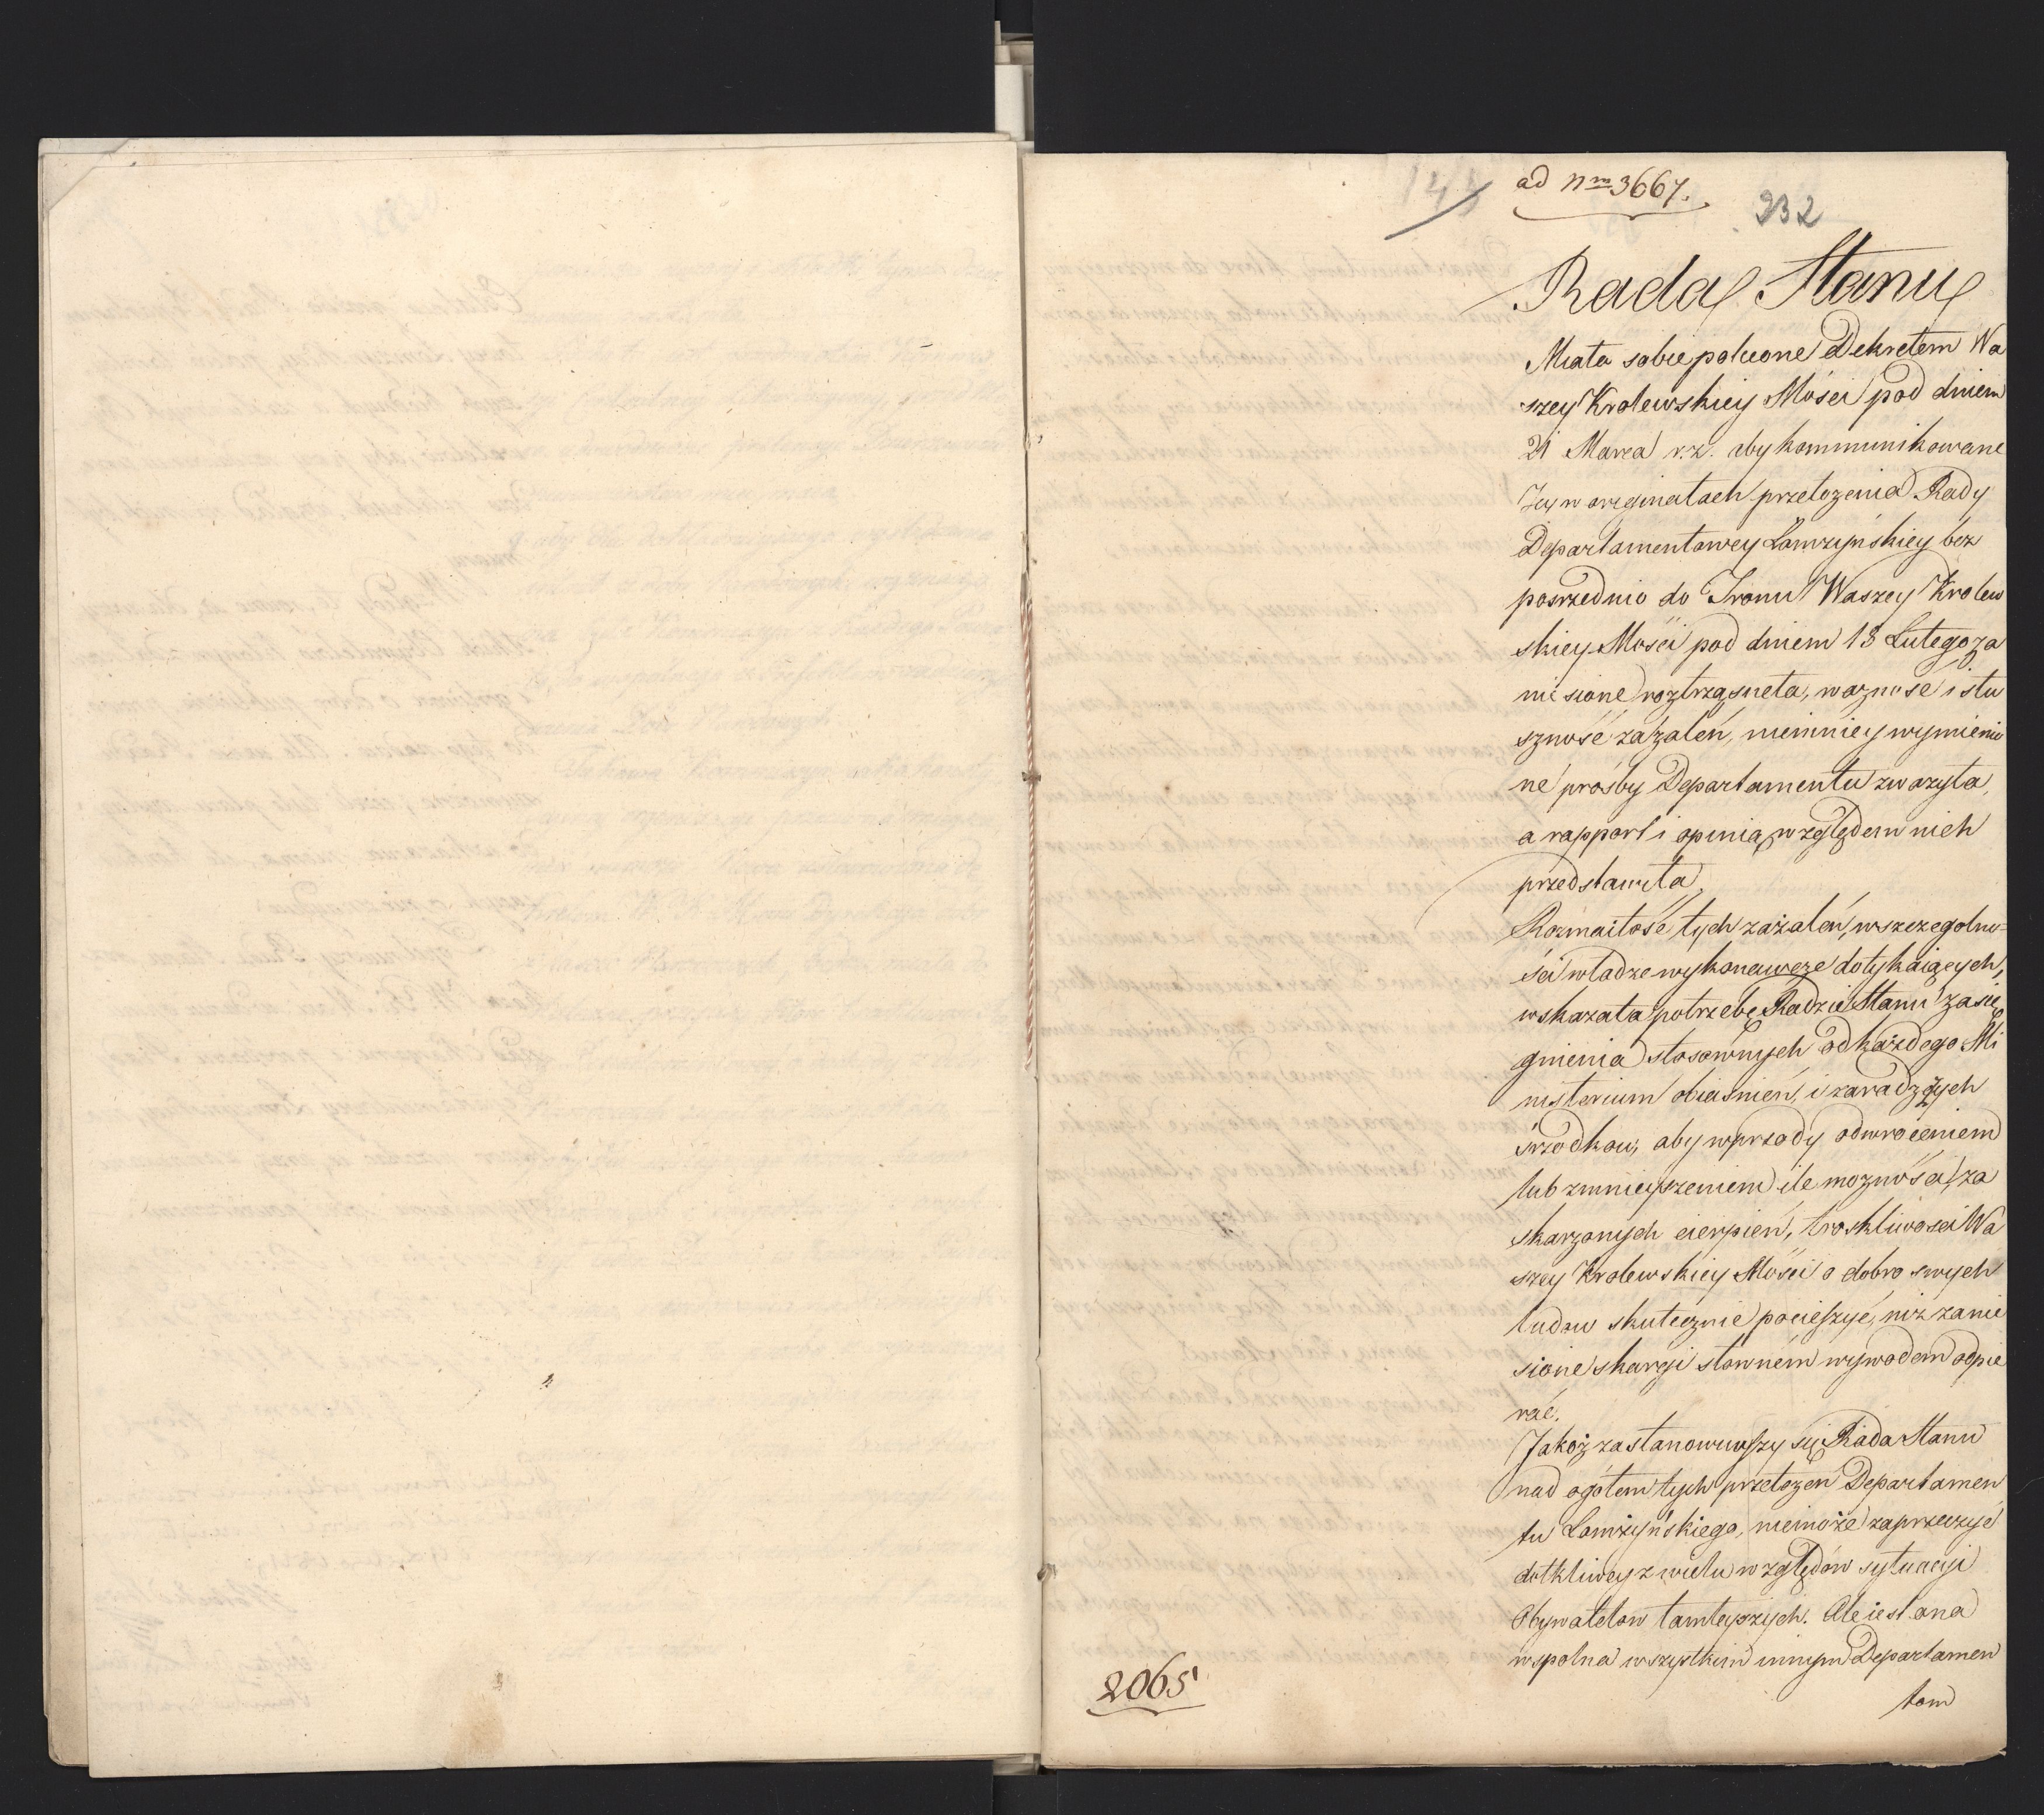 ad nrm 3667.
232
Rada Stanu
Miała sobie polecone Dekretem Wa
szey Krolewskiey Mości pod dniem
21 Marca r.z. aby kommunikowane
Jey w originałach przełożenia Rady
Departamentowey Łomżyńskiey bez
posrzednio do Tronu Waszey Krolew
skiey Mości pod dniem 13 Lutego za
niesione roztrząsneła, ważnosć i słu
szność zażaleń, niemniey wymienio
ne prośby Departamentu zważyła,
a rapport i opinią względem nich
przedstawiła.
Rozmaitość tych zażaleń, w szczegolno=
ści władze wykonawcze dotykaiących,
wskazała potrzebę Radzie Stanu zasię
gnienia stosownych od każdego Mi
nisterium obiaśnień, i zaradzczych
śrzodkow, aby wprzody odwroceniem
lub zmnieyszeniem ile możności, za
skarżonych cierpień, troskliwosci Wa
szey Krolewskiey Mości o dobro swych
ludow skutecznie pocieszyć, niż zanie
sione skargi słowném wywodem odpie
rać.
Jakoż zastanowiwszy się Rada Stanu
nad ogółem tych przełożeń Departamen
tu Łomżyńskiego, niemoże zaprzeczyć
dotkliwey z wielu względów sytuacyi
Obywatelow tamteyszych. Ale iest ona
wspolna wszystkim innym Departamen
tom
2065